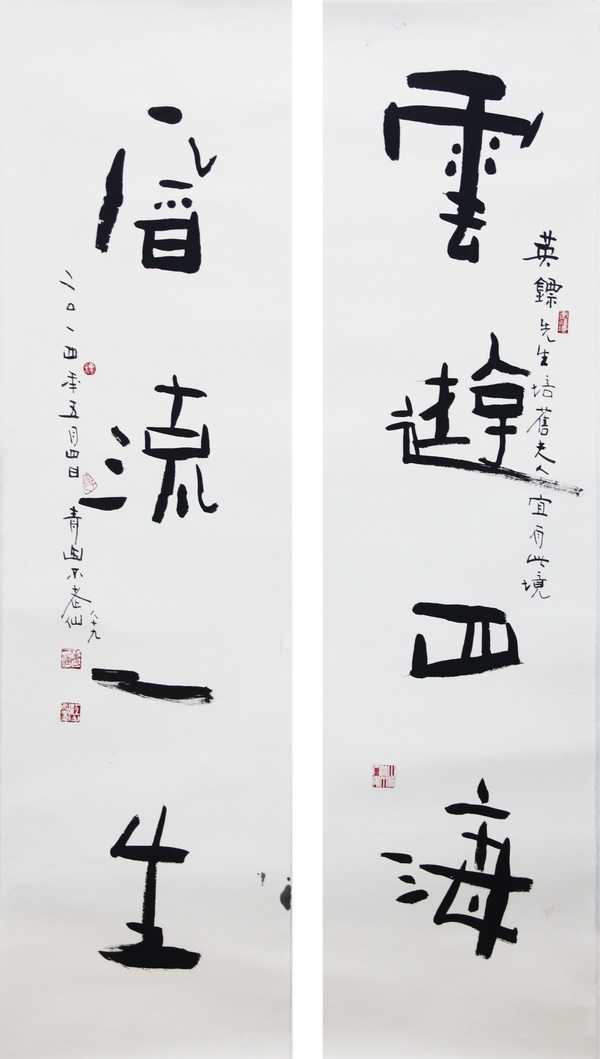 雲遊四海
英鏢先生培舊夫人宜有此境
風流一生
二〇一四年五月四日 青山不老仙 八十九